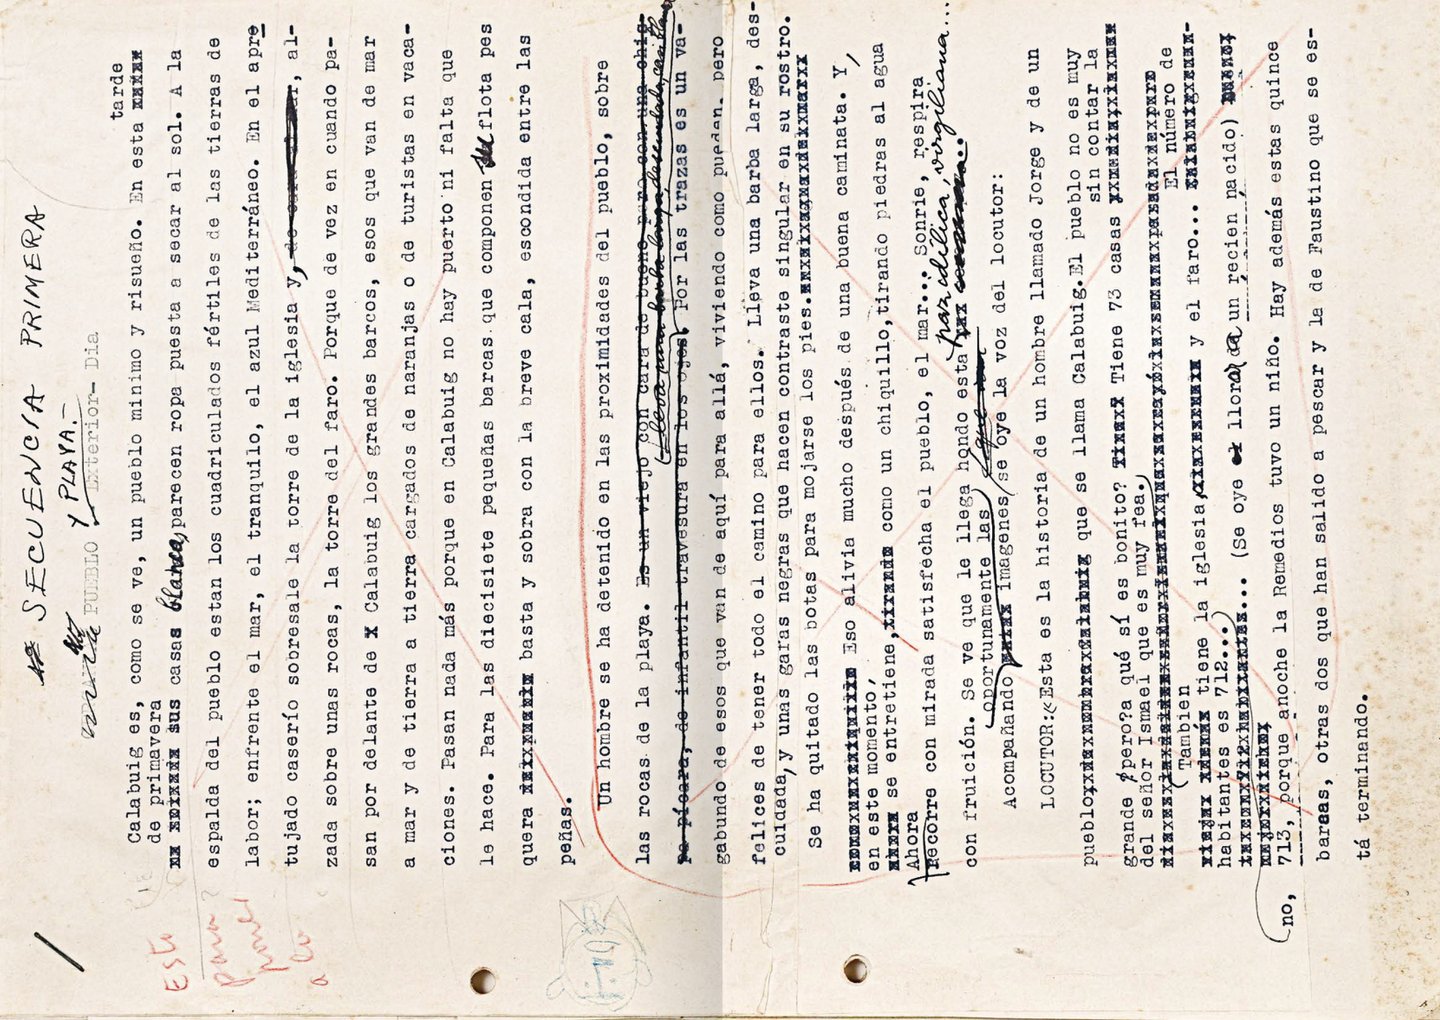 1ª SECUENCIA PRIMERA
PUEBLO Y PLAYA.- Exterior- Dia
Calabuig es, como se ve, un pueblo minimo y risueño. En esta tarde
de primavera
sus casas blancas, parecen ropa puesta a secar al sol. A la
espalda del pueblo estan los cuadriculados fértiles de las tierras de
labor; enfrente el mar, el tranquilo, el azul Mediterráneo. En el apre
tujado caserío sobresale la torre de la iglesia y, al-
zada sobre unas rocas, la torre del faro. Porque de vez en cuando pa-
san por delante de Calabuig los grandes barcos, esos que van de mar
a mar y de tierra a tierra cargados de naranjas o de turistas en vaca-
ciones. Pasan nada más porque en Calabuig no hay puerto ni falta que
le hace. Para las diecisiete pequeñas barcas que componen su flota pes
quera basta y sobra con la breve cala, escondida entre las
peñas.
Un hombre se ha detenido en las proximidades del pueblo, sobre
las rocas de la playa. Es un viejo con cara de bueno pero con una chis-
(lleva una barba larga, descuidada,
pa pícara, de infantil travesura en los ojos. Por las trazas es un va-
gabundo de esos que van de aquí para allá, viviendo como pueden, pero
felices de tener todo el camino para ellos. Lleva una barba larga, des-
cuidada, y unas garras negras que hacen contraste singular en su rostro.
Se ha quitado las botas para mojarse los pies.
Eso alivia mucho después de una buena caminata. Y,
en este momento,
se entretiene, como un chiquillo, tirando piedras al agua
Ahora
recorre con mirada satisfecha el pueblo, el mar... Sonrie, respira
con fruición. Se ve que le llega hondo esta paz idílica, virgiliana...
oportunamente las (que son
Acompañando imagenes (se oye la voz del locutor:
LOCUTOR: «Esta es la historia de un hombre llamado Jorge y de un
pueblo que se llama Calabuig. El pueblo no es muy
grande ¿pero?a qué sí es bonito? Tiene 73 casas sin contar la
del señor Ismael que es muy rea.
(Tambien
tiene la iglesia, y el faro... El número de
habitantes es 712...)
(Se oye llorar a un recien nacido)
no, 713, porque anoche la Remedios tuvo un niño. Hay además estas quince
barcas, otras dos que han salido a pescar y la de Faustino que se es-
tá terminando.
Esto
para?
poner